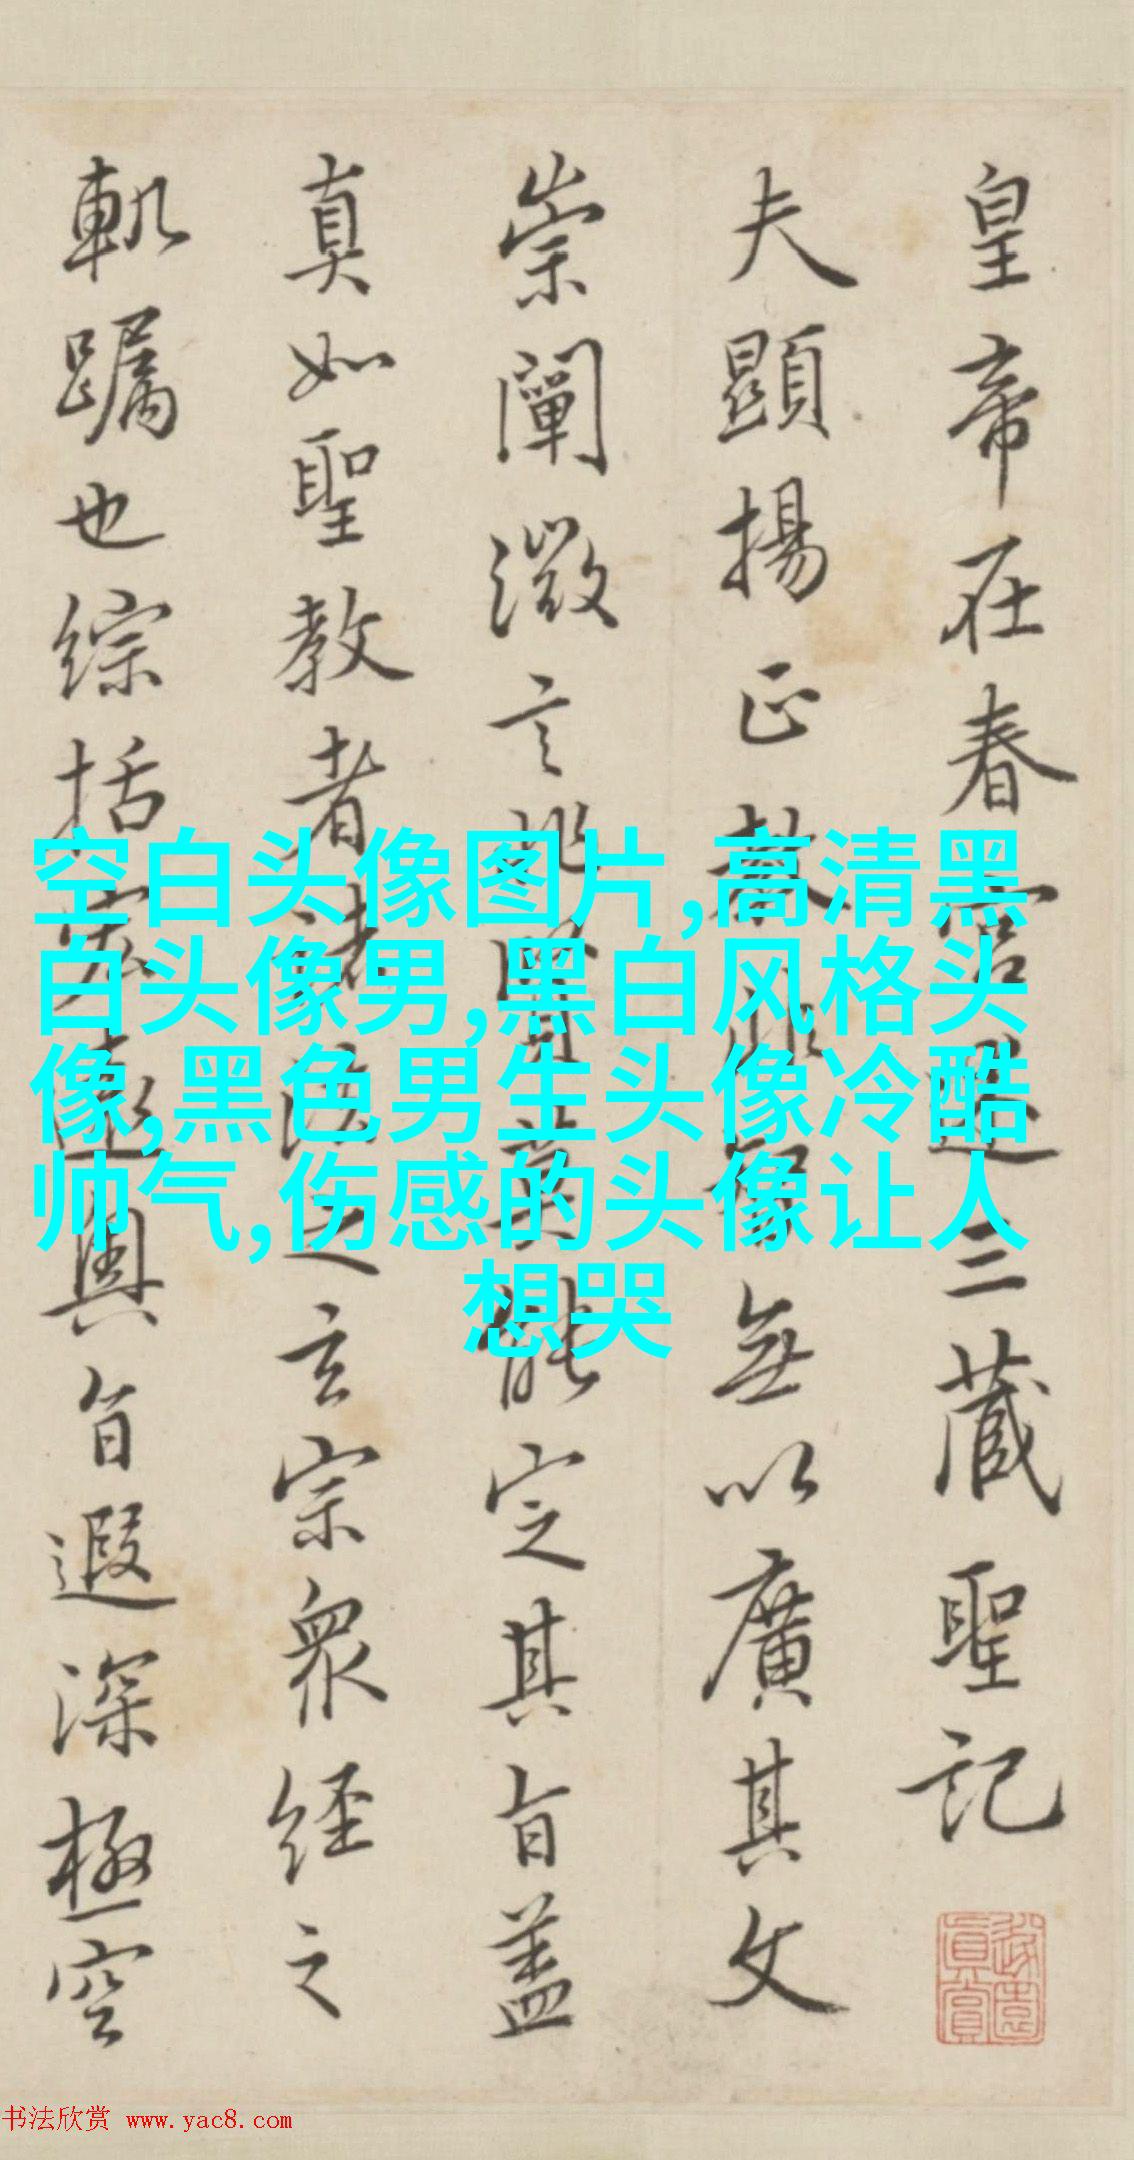 皇帝在春宮述三藏聖記
夫顯揚正教非智無以廣其文
崇闡微言非賢莫能定其旨蓋
真如聖教者諸法之玄宗衆經之
軌躅也綜括宏遠奧旨遐深極空
空白头像图片,高清黑
白头像男,黑白风格头
像,黑色男生头像冷酷
帅气,伤感的头像让人
想哭
真賞
书法欣赏 www.yac8.com